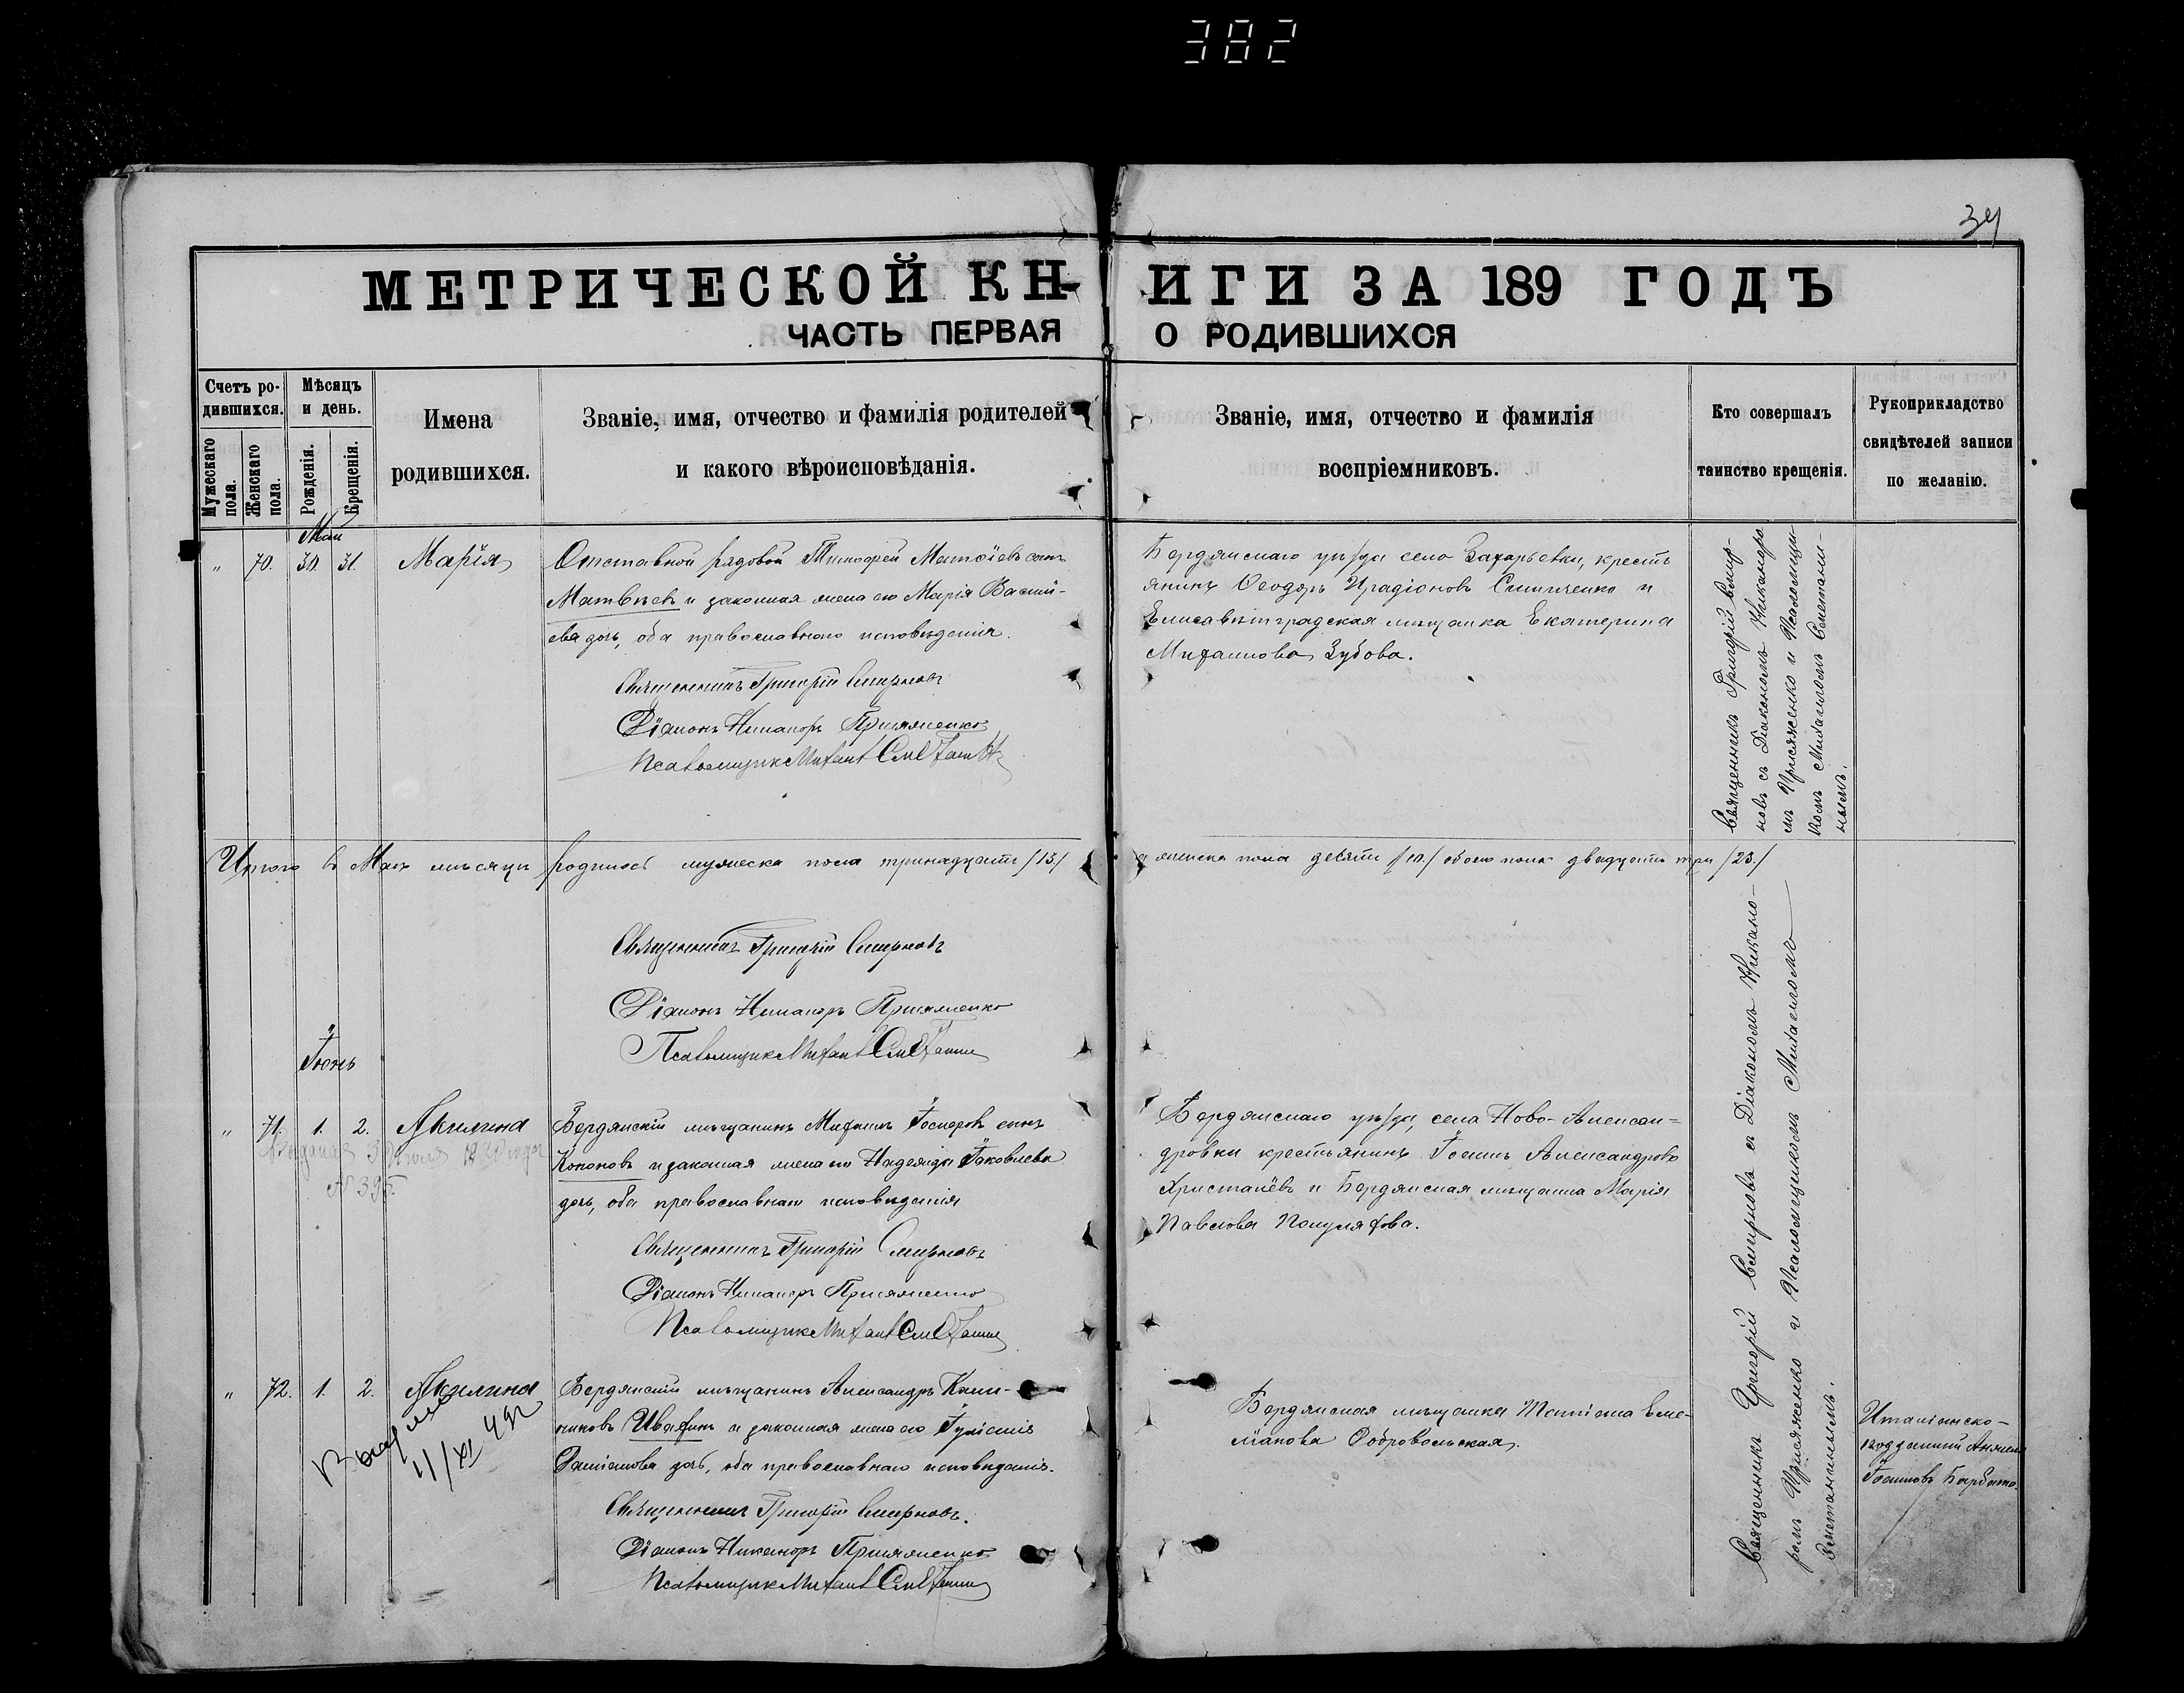 382
34
МЕТРИЧЕСКОЙ КН-ИГИ ЗА 189 ГОДЪ
ЧАСТЬ ПЕРВАЯ О РОДИВШИХСЯ
Счетъ ро-
дившихся.
Мужескаго
пола.
Женскаго
пола.
Мѣсяцъ
и день.
Рожденія.
Крещенія.
Имена
родившихся.
Званіе, имя, отчество и фамилія родителей
и какого вѣроисповѣданія.
Званіе, имя, отчество и фамилія
воспріемниковъ.
Кто совершалъ
таинство крещенія.
Рукоприкладство
свидѣтелей записи
по желанію.
Май
" 70. 30. 31. Марія
Отставной рядовой Тимофей Матѳіевъ сынъ
Матвѣевъ и законная жена его Марія Василі-
ева дочь, оба православнаго исповѣданія.
Священникъ Григорій Смирновъ
Діаконъ Никаноръ Присяженко
Псаломщикъ Михаилъ
Бердянскаго уѣзда села Захарьевки, кресть
янинъ Ѳеодоръ Ирадіоновъ и
Елисаветградская мѣщанка Екатерина
Михаилова Зубова.
Священникъ Григорій Смир-
новъ съ Діакономъ Никаноро
мъ Присяженко и Псаломщи-
комъ Михаиломъ Сметани-
нымъ.
Итого въ Маѣ мѣсяцѣ родилось мужеска пола тринадцать /13/
а женска пола десять /10/ обоего пола двадцать три /23/
Священникъ Григорій Смирновъ
Діаконъ Никаноръ Присяженко
Псаломщикъ Михаилъ
Іюнь
" 71. 1. 2. Акилина
№ 395
Бердянскій мѣщанинъ Михаилъ сынъ
Кононовъ и законная жена его Надежда Іаковлева
дочь, оба православнаго исповѣданія
Священникъ Григорій Смирновъ
Діаконъ Никаноръ Присяженко
Псаломщикъ Михаилъ
Бердянскаго уѣзда, села Ново-Алексан=
дровки крестьянинъ Іоаннъ Александровъ
и Бердянская мѣщанка Марія
Павлова
Священникъ Григорій Смирновъ съ Діакономъ Никано-
ромъ Присяженко и Псаломщикомъ Михаиломъ
Сметанинымъ.
" 72. 1. 2. Акилина
11/XI 49г
Бердянскій мѣщанинъ Александръ
и законная жена его
дочь, оба православнаго исповѣданія.
Священникъ Григорій Смирновъ.
Діаконъ Никаноръ Присяженко
Псаломщикъ Михаилъ
Бердянская мѣщанка Татіана
Добровольская.
Италіянско-
подданный
Іоанновъ